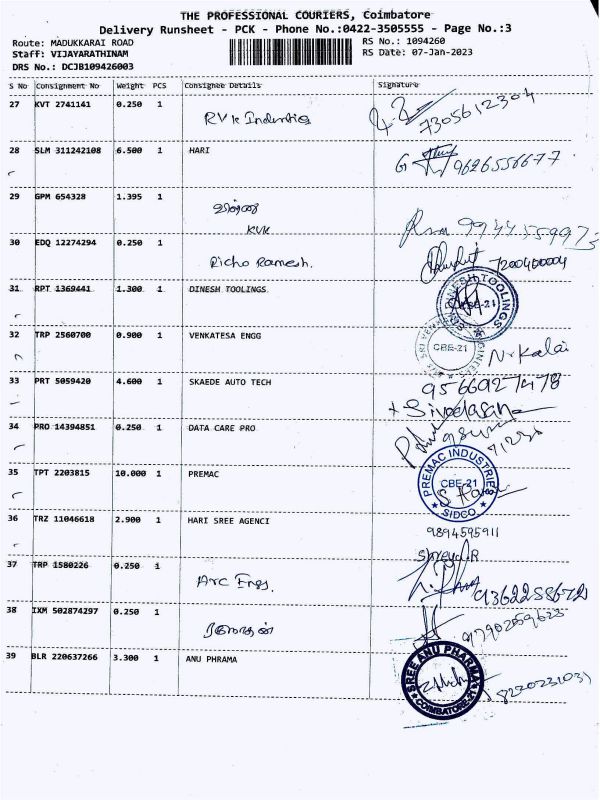 THE PROFESSIONAL COURIERS, Coimbatore
Delivery Runsheet - PCK - Phone No.:0422-3505555 - Page No.:3
Route: MADUKKARAI ROAD RS No.: 1094260
Staff: VIJAYARATHINAM RS Date: 07-Jan-2023
DRS No.: DCJB109426003
S No Consignment No Weight PCS Consignee Details Signature
27 KVT 2741141 0.250 1 RVK Industries 7305612304
28 SLM 311242108 6.500 1 HARI 9626556677
29 GPM 654328 1.395 1
KVK
30 EDQ 12274294 0.250 1 Richo Ramesh. 7200400004
31 RPT 1369441 1.300 1 DINESH TOOLINGS DINESH TOOLINGS CBE-21
32 TRP 2560700 0.900 1 VENKATESA ENGG CBE-21 N. Kalai
33 PRT 5059420 4.600 1 SKAEDE AUTO TECH 9566027478
34 PRO 14394851 0.250 1 DATA CARE PRO
35 TPT 2203815 10.000 1 PREMAC PREMAC INDUSTRIES CBE-21 SIDCO
36 TRZ 11046618 2.900 1 HARI SREE AGENCI 9894595911
37 TRP 1580226 0.250 1 Arc Engg.
38 IXM 502874297 0.250 1
39 BLR 220637266 3.300 1 ANU PHRAMA SREE ANU PHARMA COIMBATORE-21